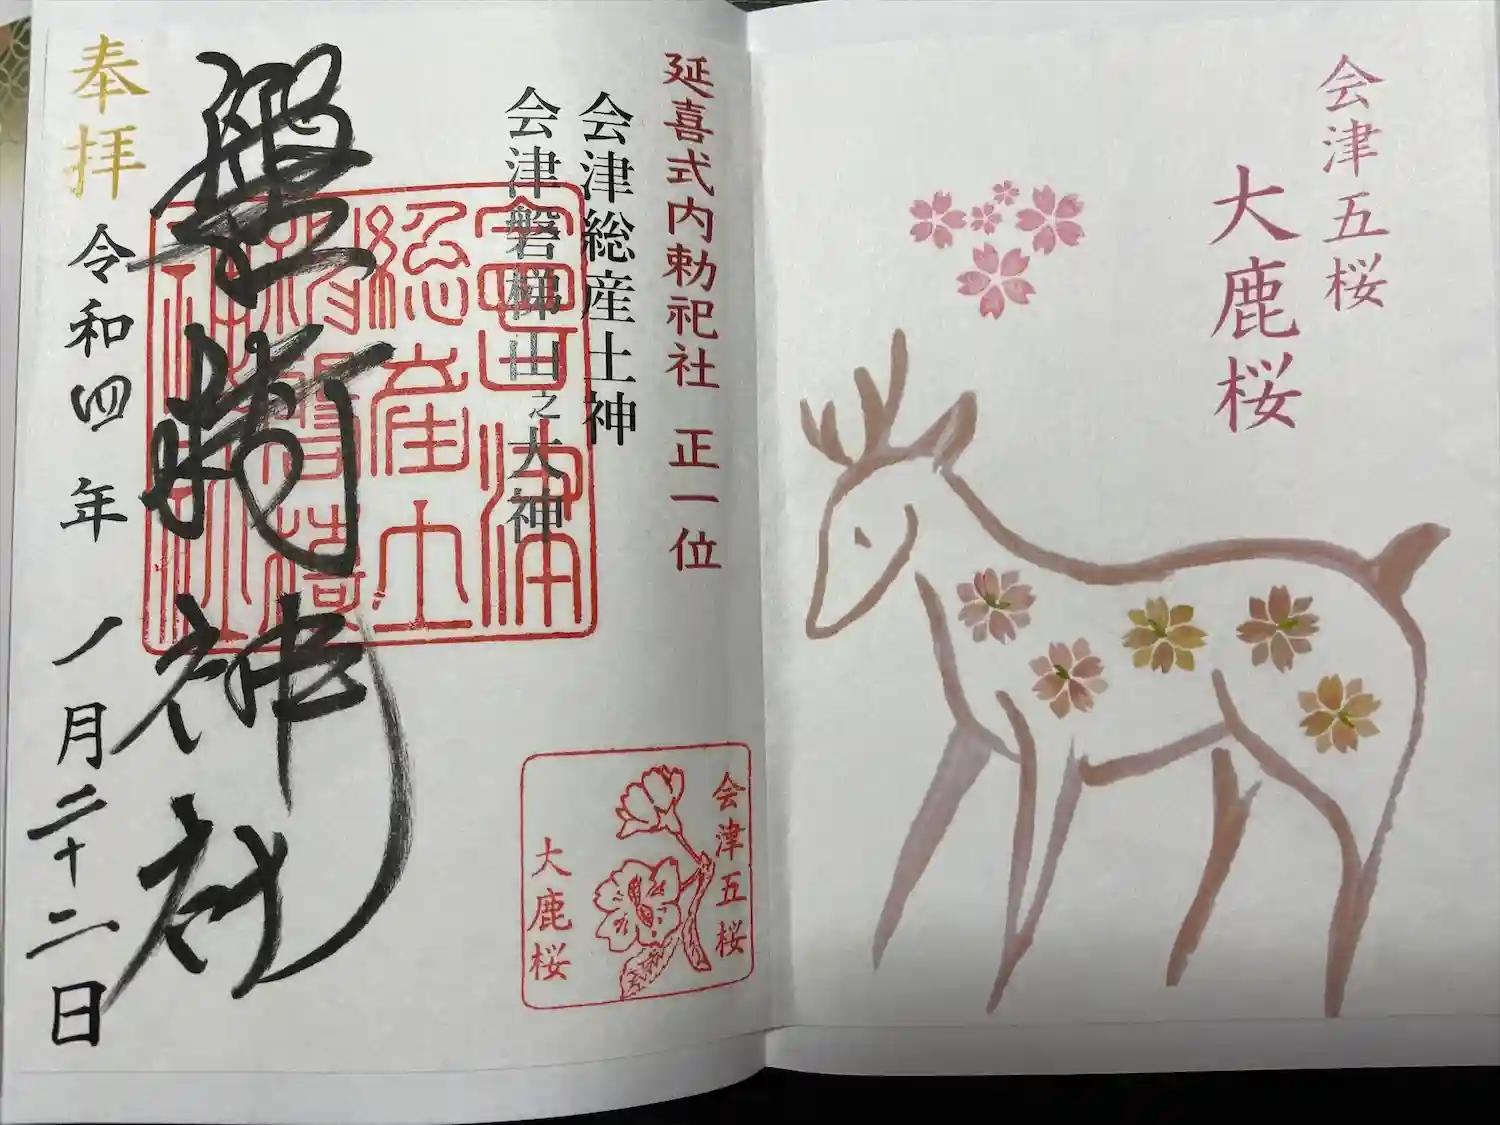 会津五桜
大鹿桜
延喜式内勅祀社 正一位
会津総産土神
会津磐梯山之大神
会津
総産土
神社
磐椅神社
奉拝
令和四年一月二十二日
会津五桜
大鹿桜